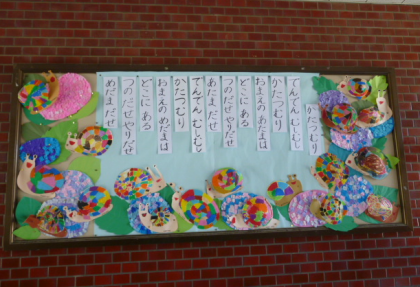 かたつむり
でんでんむしむし
かたつむり
おまえのあたまは
どこにある
つのだせやりだせ
あたまだせ
でんでんむしむし
かたつむり
おまえのめだまは
どこにある
つのだせやりだせ
めだまだせ